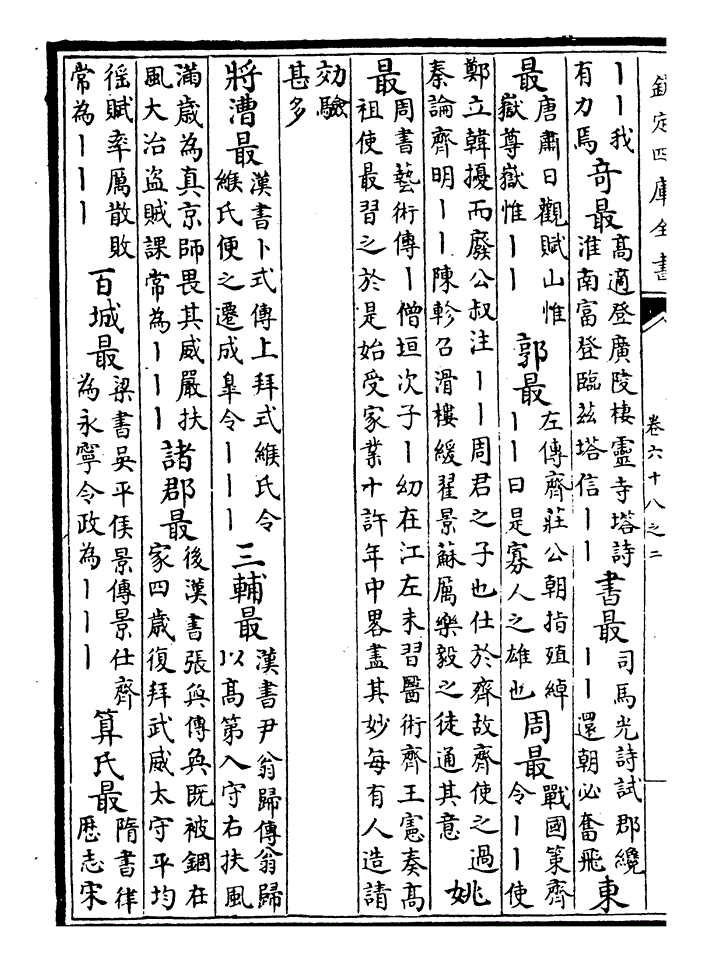 欽定四庫全書
卷六十八之二
丨丨我
有力焉
奇最
高適登廣陵棲靈寺塔詩
淮南富登臨茲塔信丨丨
書最
司馬光詩試郡纔
丨丨還朝必奮飛
東
最
唐肅日觀賦山惟
嶽尊嶽惟丨丨
郭最
左傳齊莊公朝指殖綽
丨丨曰是寡人之雄也
周最
戰國策齊
令丨丨使
鄭立韓擾而廢公叔注丨丨周君之子也仕於齊故齊使之過
秦論齊明丨丨陳軫召滑樓緩翟景蘇厲樂毅之徒通其意
姚
最
周書藝術傳丨僧垣次子丨幼在江左未習醫術齊王憲奏高
祖使最習之於是始受家業十許年中畧盡其妙每有人造請
効驗
甚多
將漕最
漢書卜式傳上拜式緱氏令
緱氏便之遷成臯令丨丨丨
三輔最
漢書尹翁歸傳翁歸
以高第入守右扶風
滿歲為真京師畏其威嚴扶
風大治盜賊課常為丨丨丨
諸郡最
後漢書張奐傳奐既被錮在
家四歲復拜武威太守平均
徭賦率厲散敗
常為丨丨丨
百城最
梁書吳平侯景傳景仕齊
為永寧令政為丨丨丨
算氏最
隋書律
歷志宋